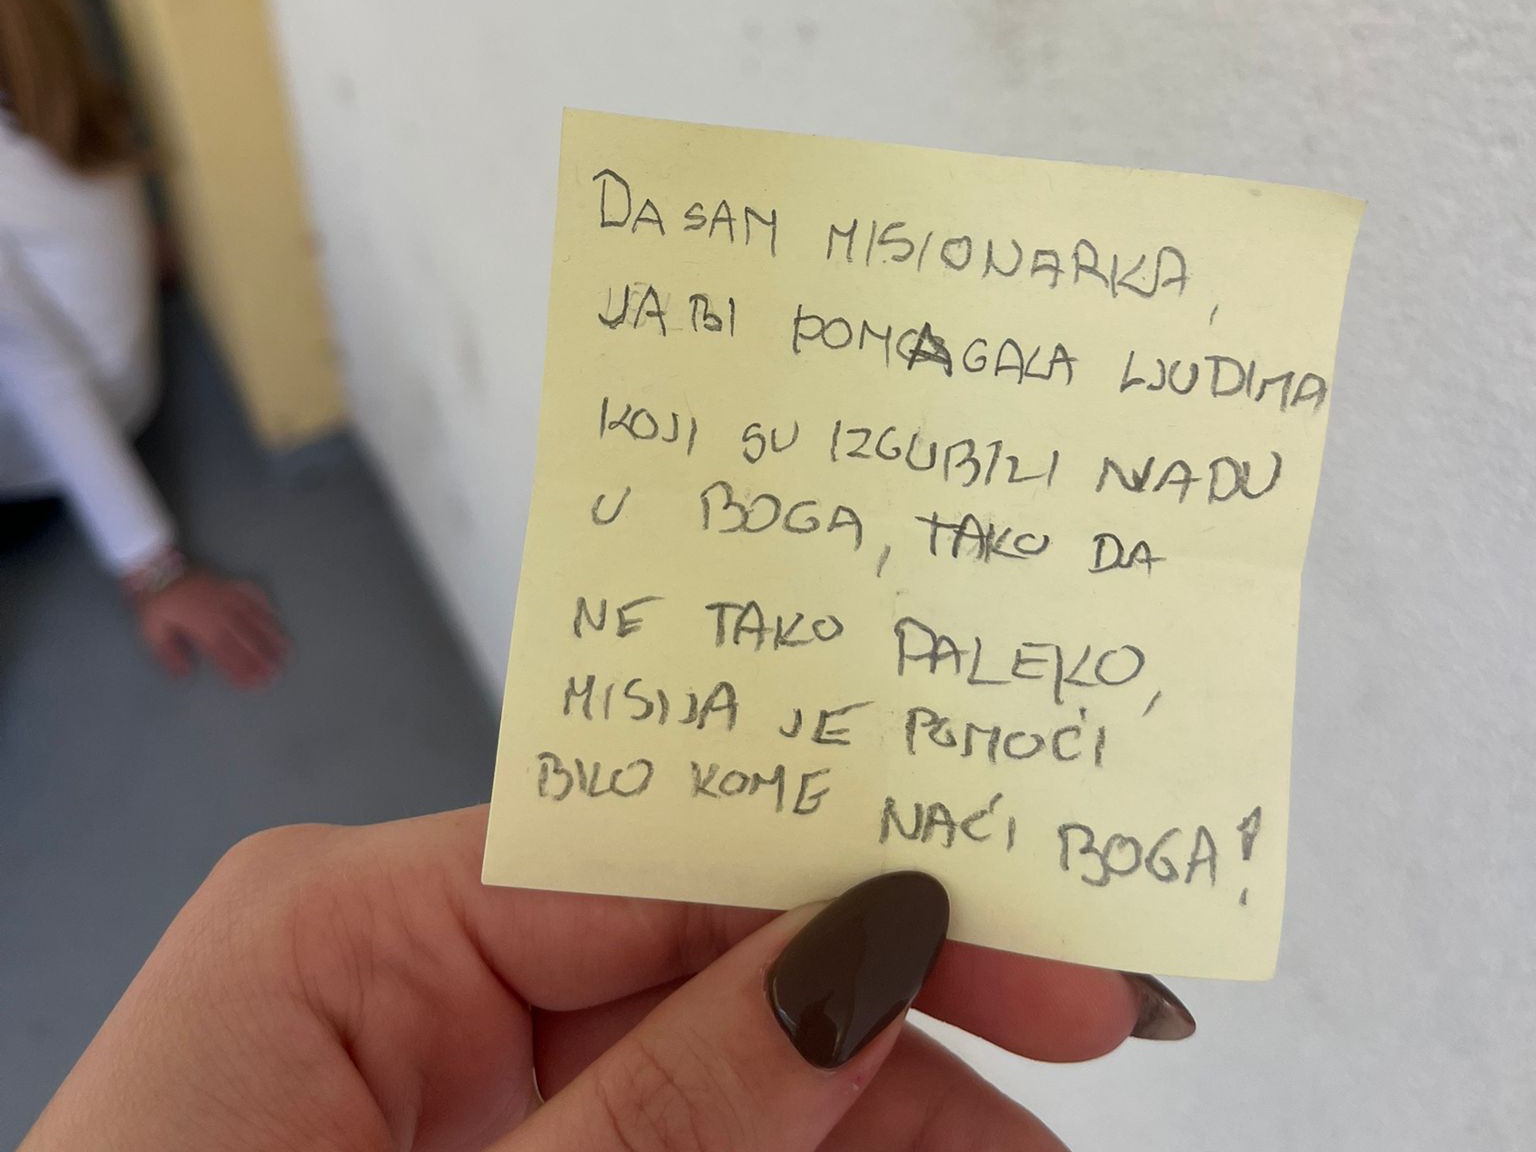 DA SAM MISIONARKA,
JA BI POMAGALA LJUDIMA
KOJI SU IZGUBILI NADU
U BOGA, TAKO DA
NE TAKO DALEKO,
MISIJA JE POMOĆI
BILO KOME NAĆI BOGA!